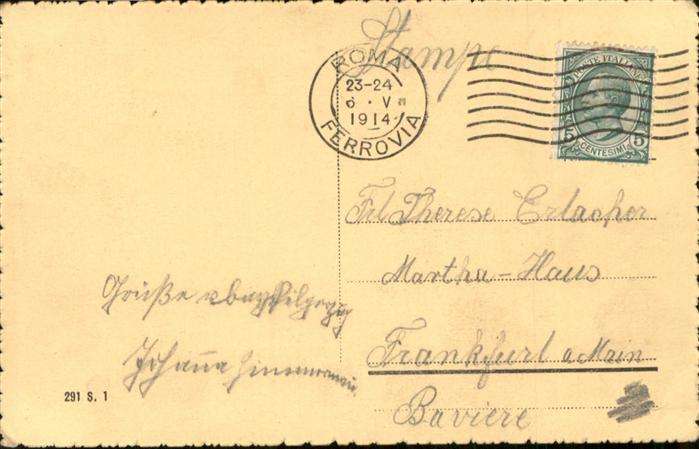 Stampe
ROMA
23-24
6 · V
1914
FERROVIA
POSTE ITALIANE
5 5
CENTESIMI
Frl Therese Erlacher
Martha-Haus
Frankfurt a Main
Baviere
Grüße
Johanna
291 S. 1